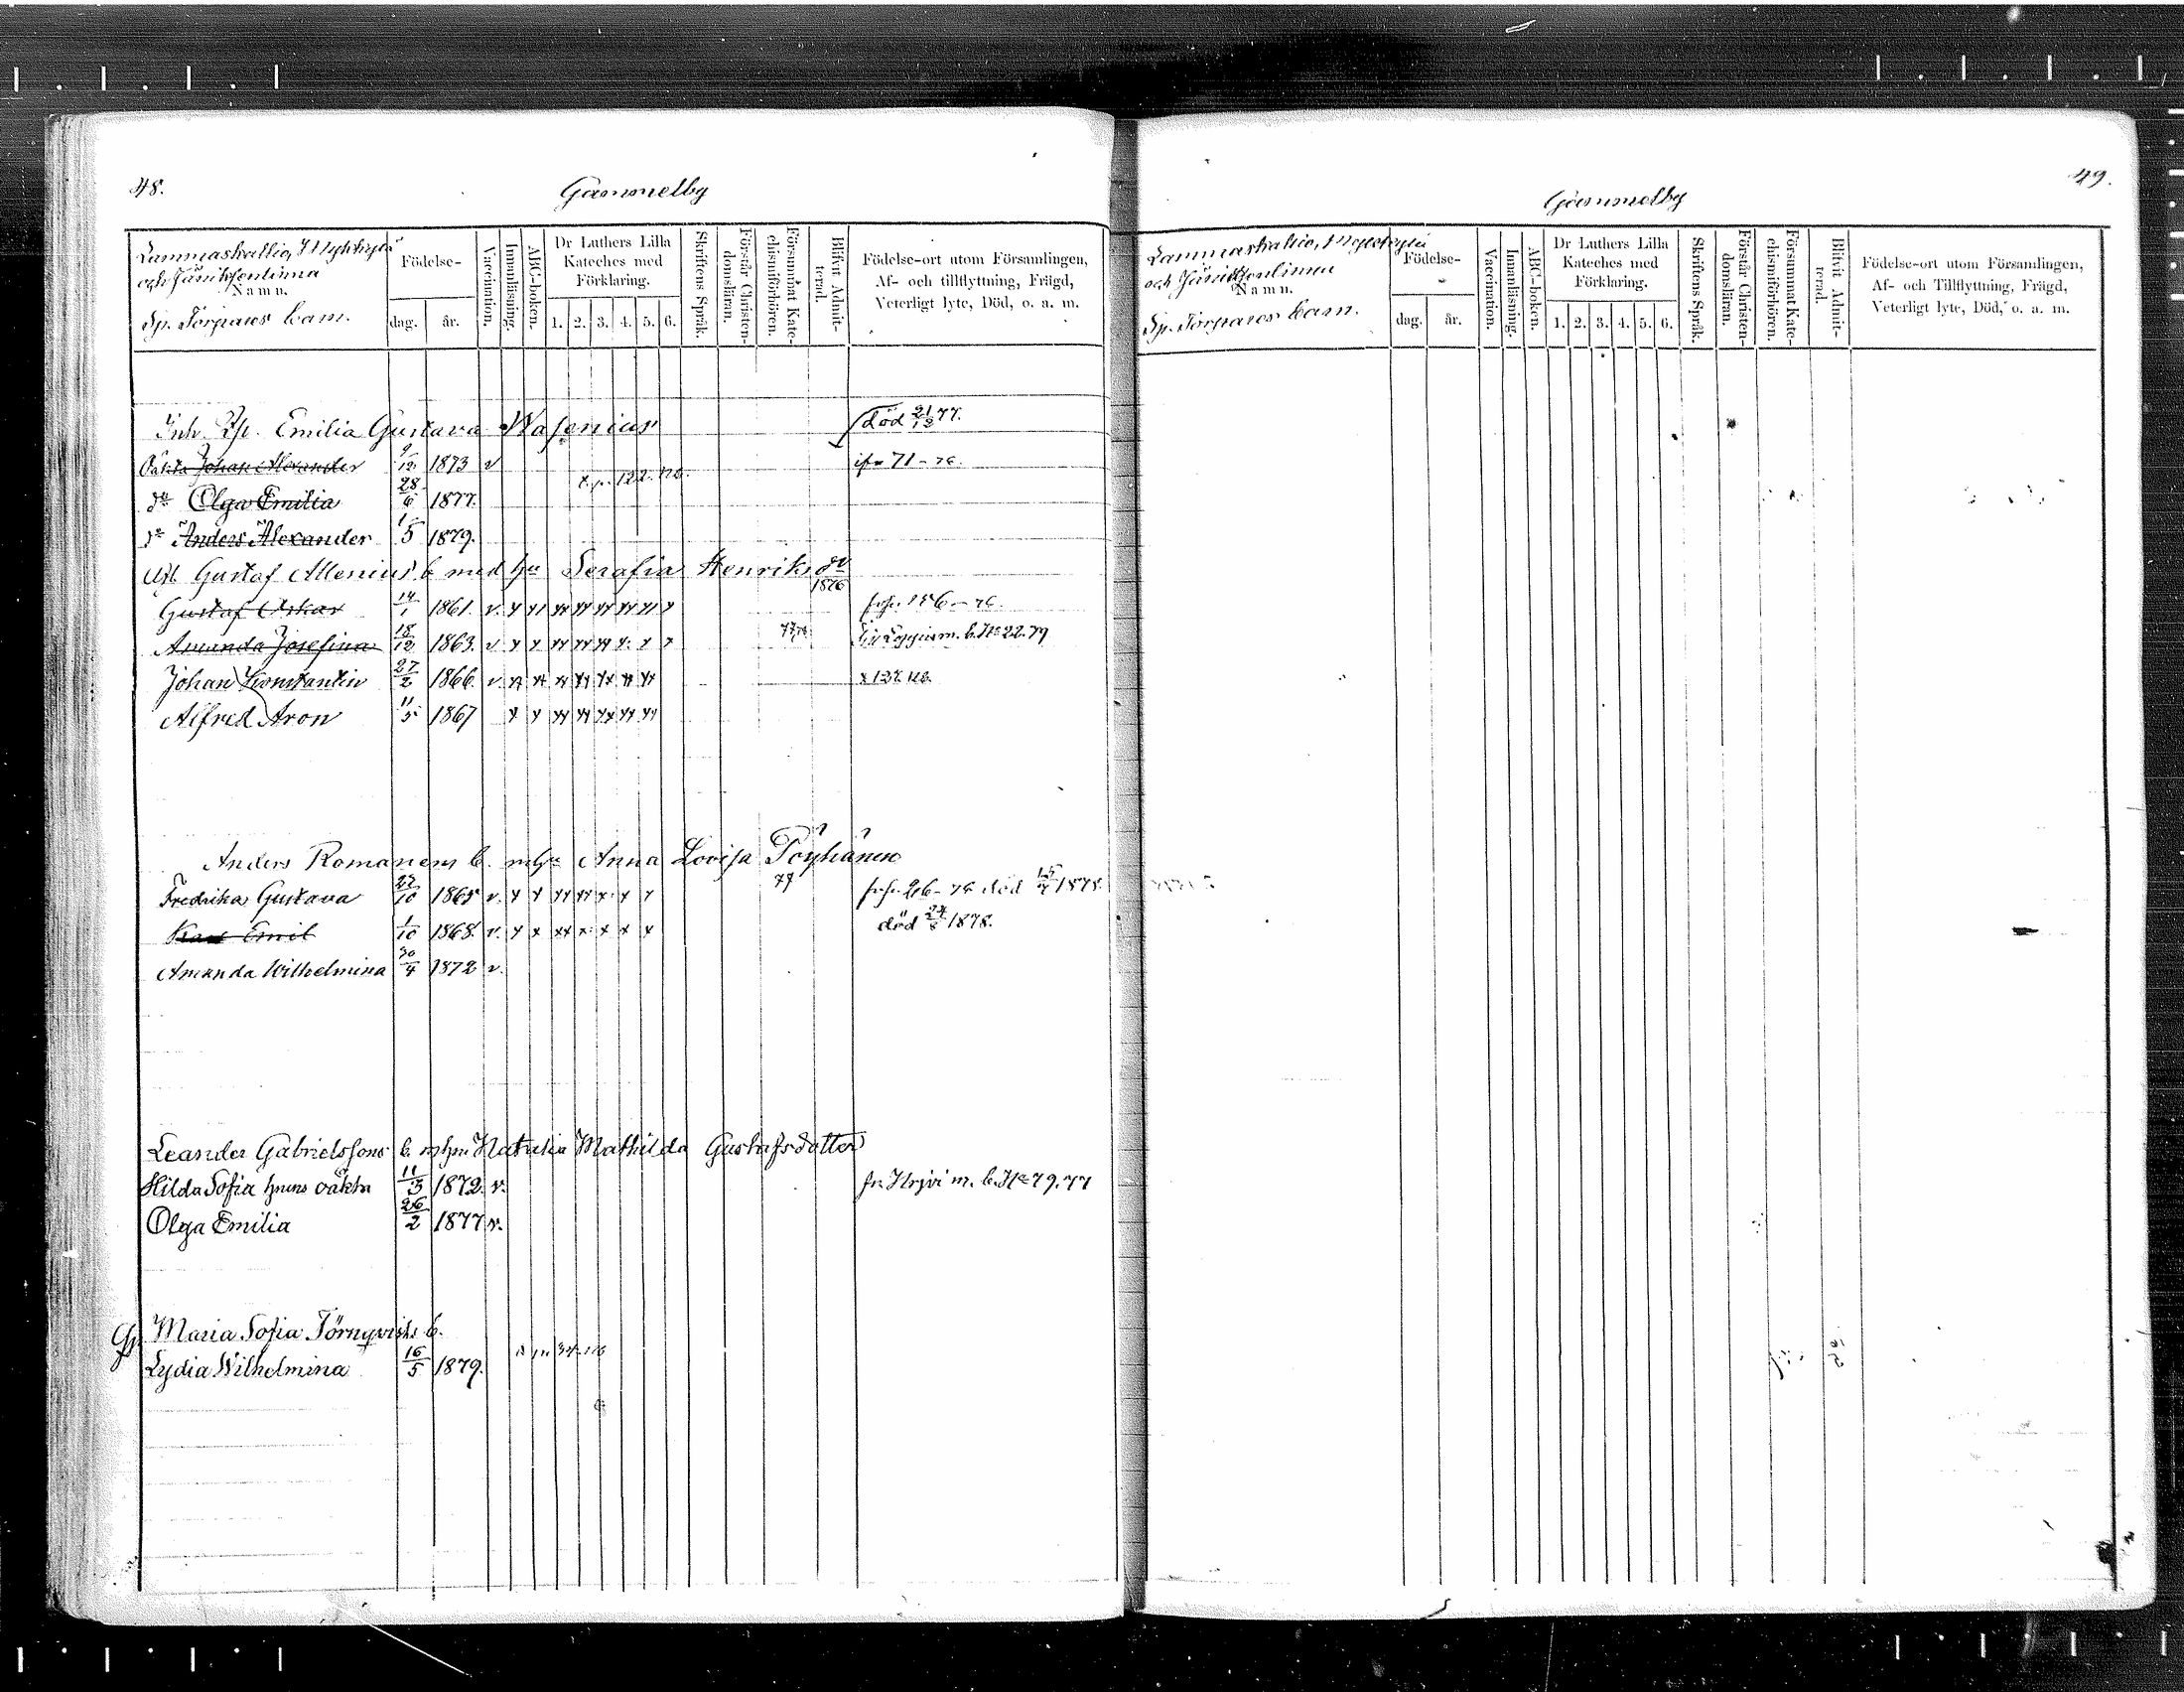 48.
Gammelby
Lammaskallio, Nykkylä
och Jäniksenlinna
Namn.
Sp. Torpares barn.
Födelse-
dag. år.
Vaccination.
Innanläsning.
ABC-boken.
Dr Luthers Lilla
Kateches med
Förklaring.
1. 2. 3. 4. 5. 6.
Skriftens Språk.
Förstår Christen-
domsläran.
Försummat Kate-
chismiförhören.
Blifvit Admit-
terad.
Födelse-ort utom Församlingen,
Af- och tillflyttning, Frägd,
Veterligt lyte, Död, o. a. m.
Inh. Emilia Gustava Wasenius
död 21/12 77.
Oäkta Johan Alexander 9/12 1873 v 71-76.
dn Olga Emilia 28/6 1877.
dn Anders Alexander 1/5 1879.
Gustaf Allenius b med hu Serafia Henriksdr
1876
Gustaf Oskar 14/1 1861. v. x xı xx xx xx xx xı x 156-76.
Amanda Josefina 18/12 1863. v x x xx xx xx x. x x m. b. No 22. 79
Johan Konstantin 27/2 1866. v. xx xx xx xx xx xx xx
Alfred Aron 11/5 1867 x x xx xx xx xx xx
Anders Romanens b. m hu Anna Lovisa Töyhänen
77
Fredrika Gustava 22/10 1865 v. x x xx xx x. x x 26-76 död 15/4 1878.
Karl Emil 1/10 1868. v. x x xx x. x x x död 24/5 1878.
Amanda Wilhelmina 30/4 1872 v.
Leander Gabrielssons b. m hu Natalia Mathilda Gustafsdotter
Hilda Sofia hennes oäkta 11/3 1872. v. m. b. No 79. 77
Olga Emilia 26/2 1877 v.
Maria Sofia Törnqvists b.
Lydia Wilhelmina 16/5 1879.
49.
Gammelby
Lammaskallio, Nykkylä
och Jäniksenlinna
Namn.
Sp. Torpares barn.
Födelse-
dag. år.
Vaccination.
Innanläsning.
ABC-boken.
Dr Luthers Lilla
Kateches med
Förklaring.
1. 2. 3. 4. 5. 6.
Skriftens Språk.
Förstår Christen-
domsläran.
Försummat Kate-
chismiförhören.
Blifvit Admit-
terad.
Födelse-ort utom Församlingen,
Af- och Tillflyttning, Frägd,
Veterligt lyte, Död, o. a. m.